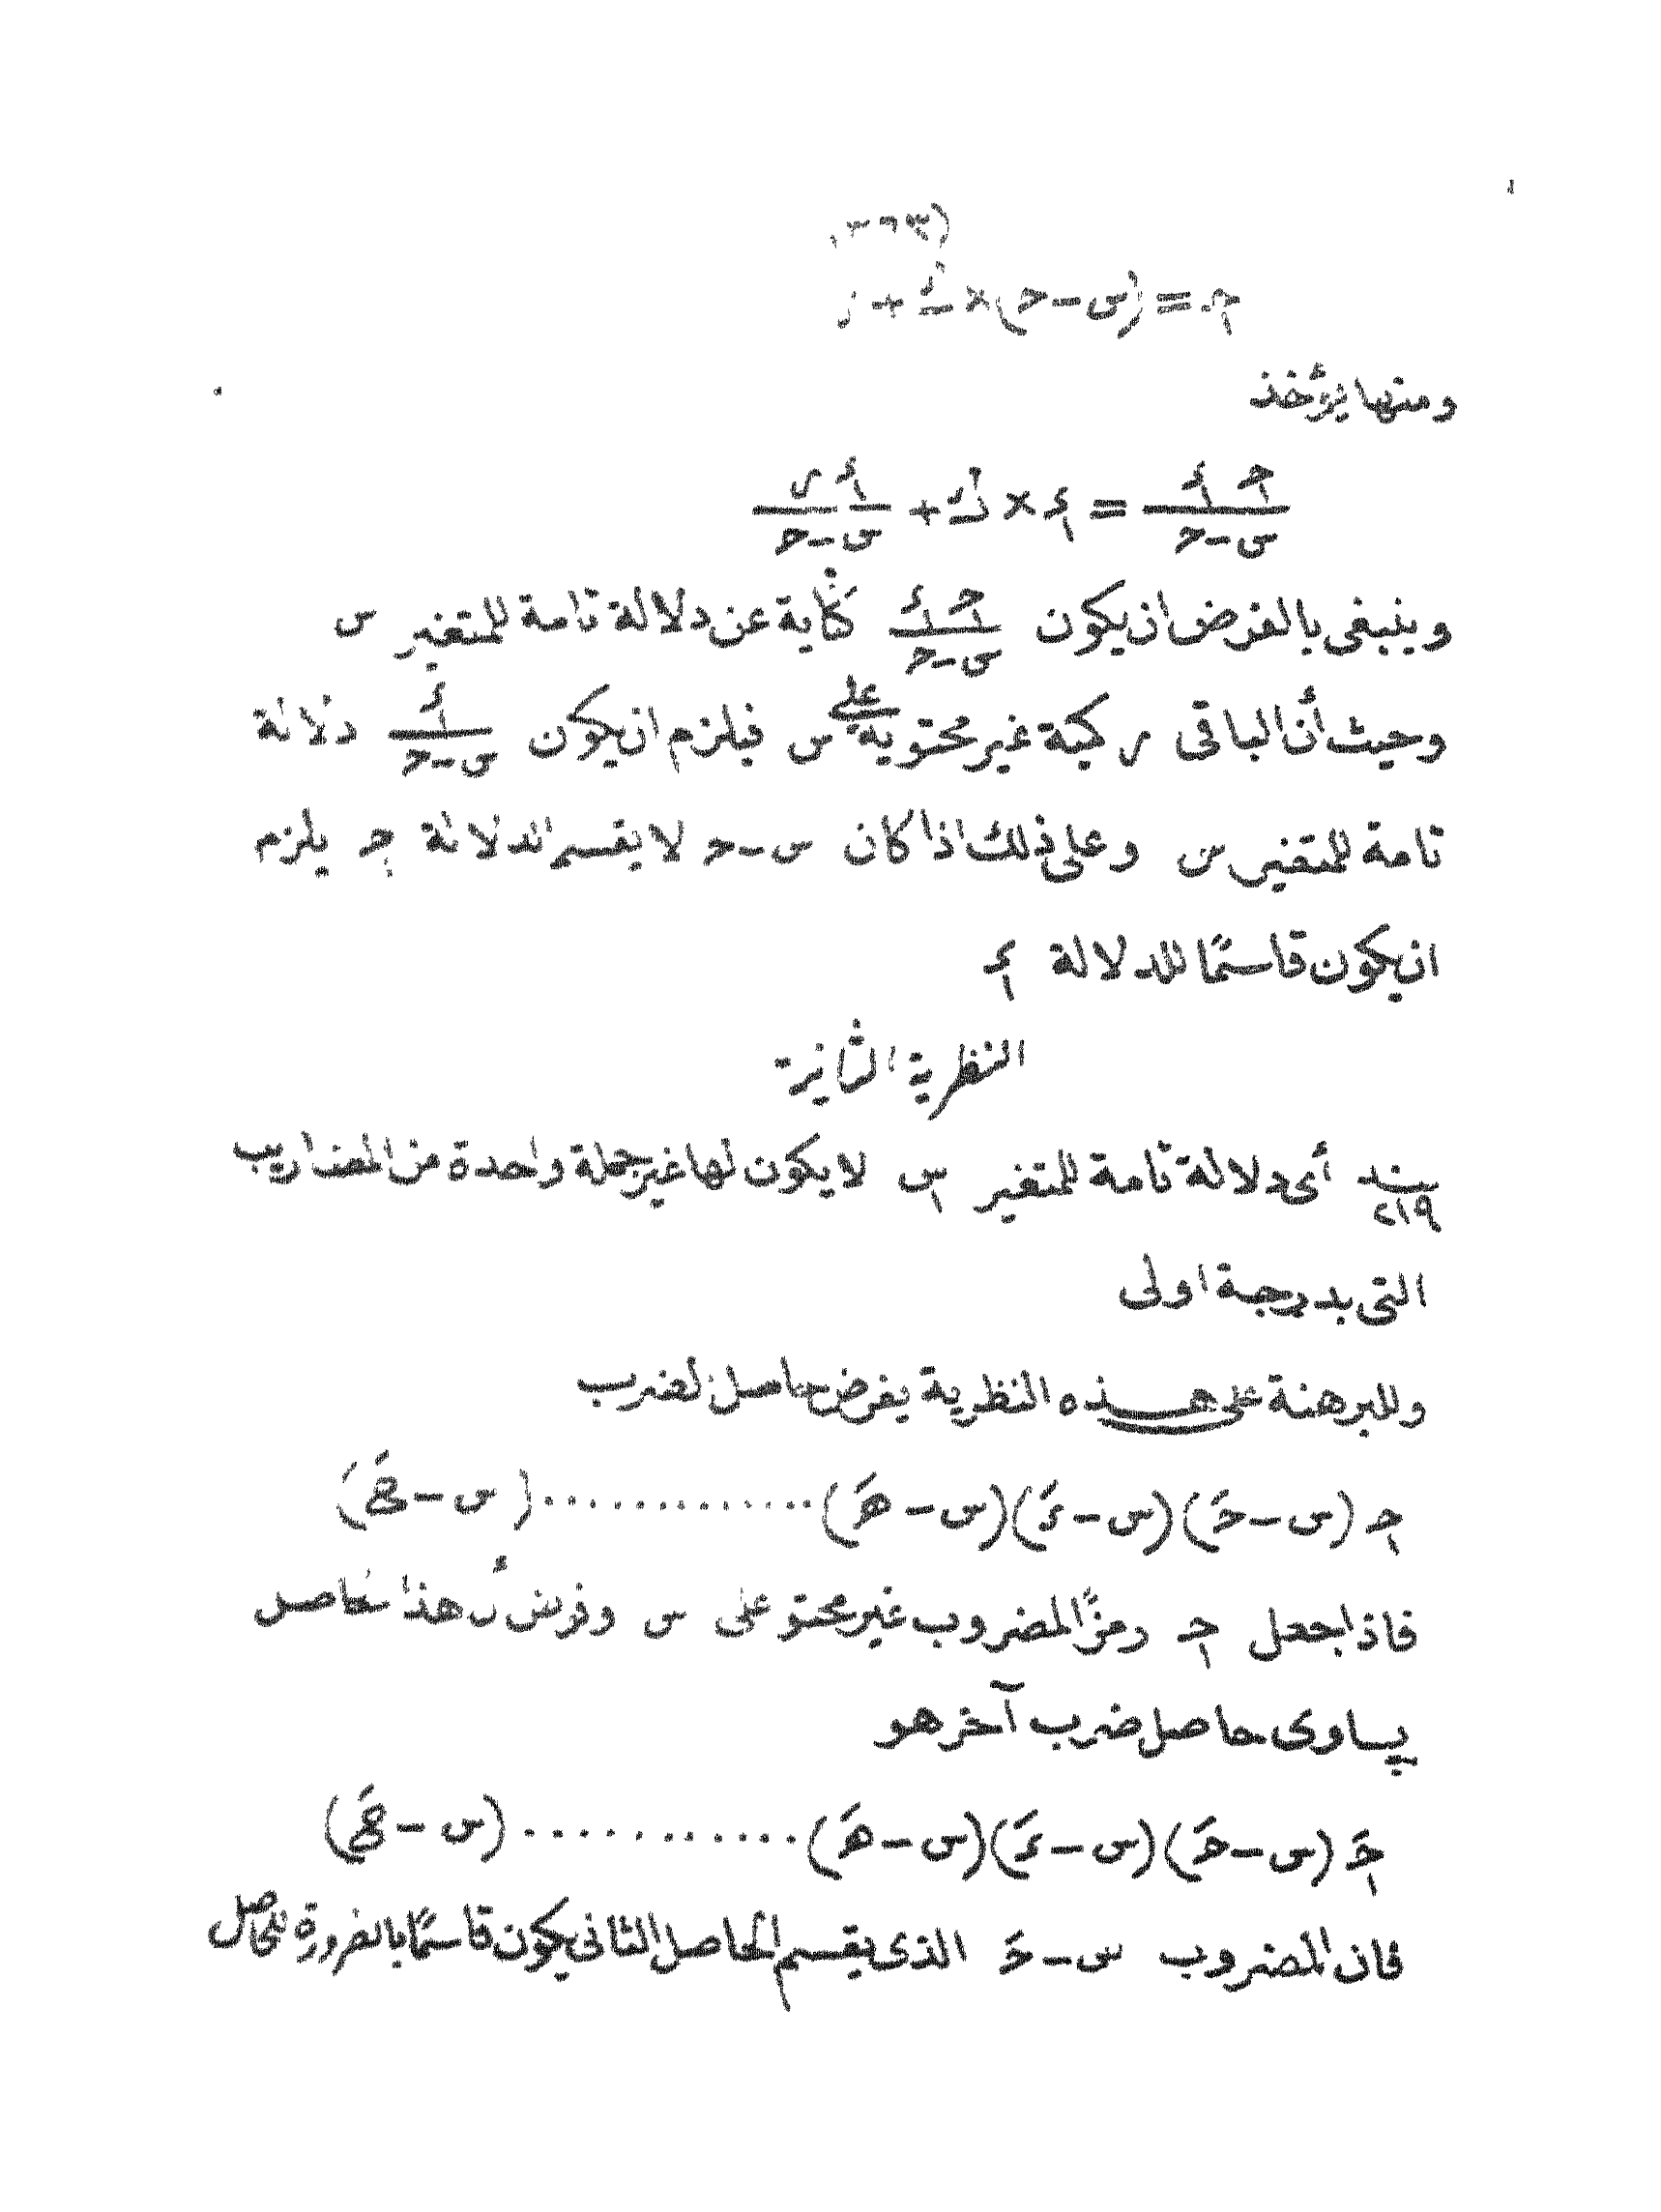 جـ = (س-ح)×ك+ر
ومنها يؤخذ
جـ ء / س-ح = ء×ك + ء ر / س-ح
وينبغى بالفرض ان يكون جـ ء / س-ح كناية عن دلالة تامة للمتغير س
وحيث أن الباقى ر كمية غير محتوية على س فيلزم ان يكون ء / س-ح دلالة
تامة للمتغير س وعلى ذلك اذا كان س-ح لا يقسم الدلالة جـ يلزم
ان يكون قاسمًا للدلالة ء
النظرية الثانية
بند ٢١٩ أى دلالة تامة للمتغير س لا يكون لها غير جملة واحدة من المضاريب
التى بدرجة اولى
وللبرهنة على هذه النظرية يفرض حاصل ضرب
جـ (س-حَ)(س-ءَ)(س-هَ)............(س-حَ)
فاذا جعل جـ رمزًا لمضروب غير محتو على س وفرض أن هذا الحاصل
يساوى حاصل ضرب آخر هو
جَـ (س-حَ)(س-ءَ)(س-هَ)...........(س-حَ)
فان المضروب س-حَ الذى يقسم الحاصل الثانى يكون قاسمًا بالضرورة للحاصل